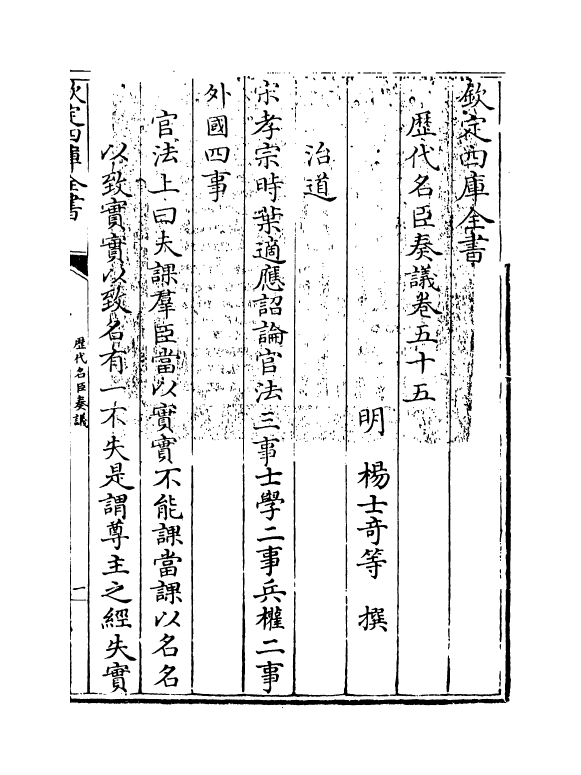 欽定四庫全書
歴代名臣奏議卷五十五
明　楊士竒等　撰
治道
宋孝宗時葉適應詔論官法三事士學二事兵權二事
外國四事
官法上曰夫課羣臣當以實實不能課當課以名名
以致實實以致名有一不失是謂尊主之經失實
欽定四庫全書
歴代名臣奏議
一